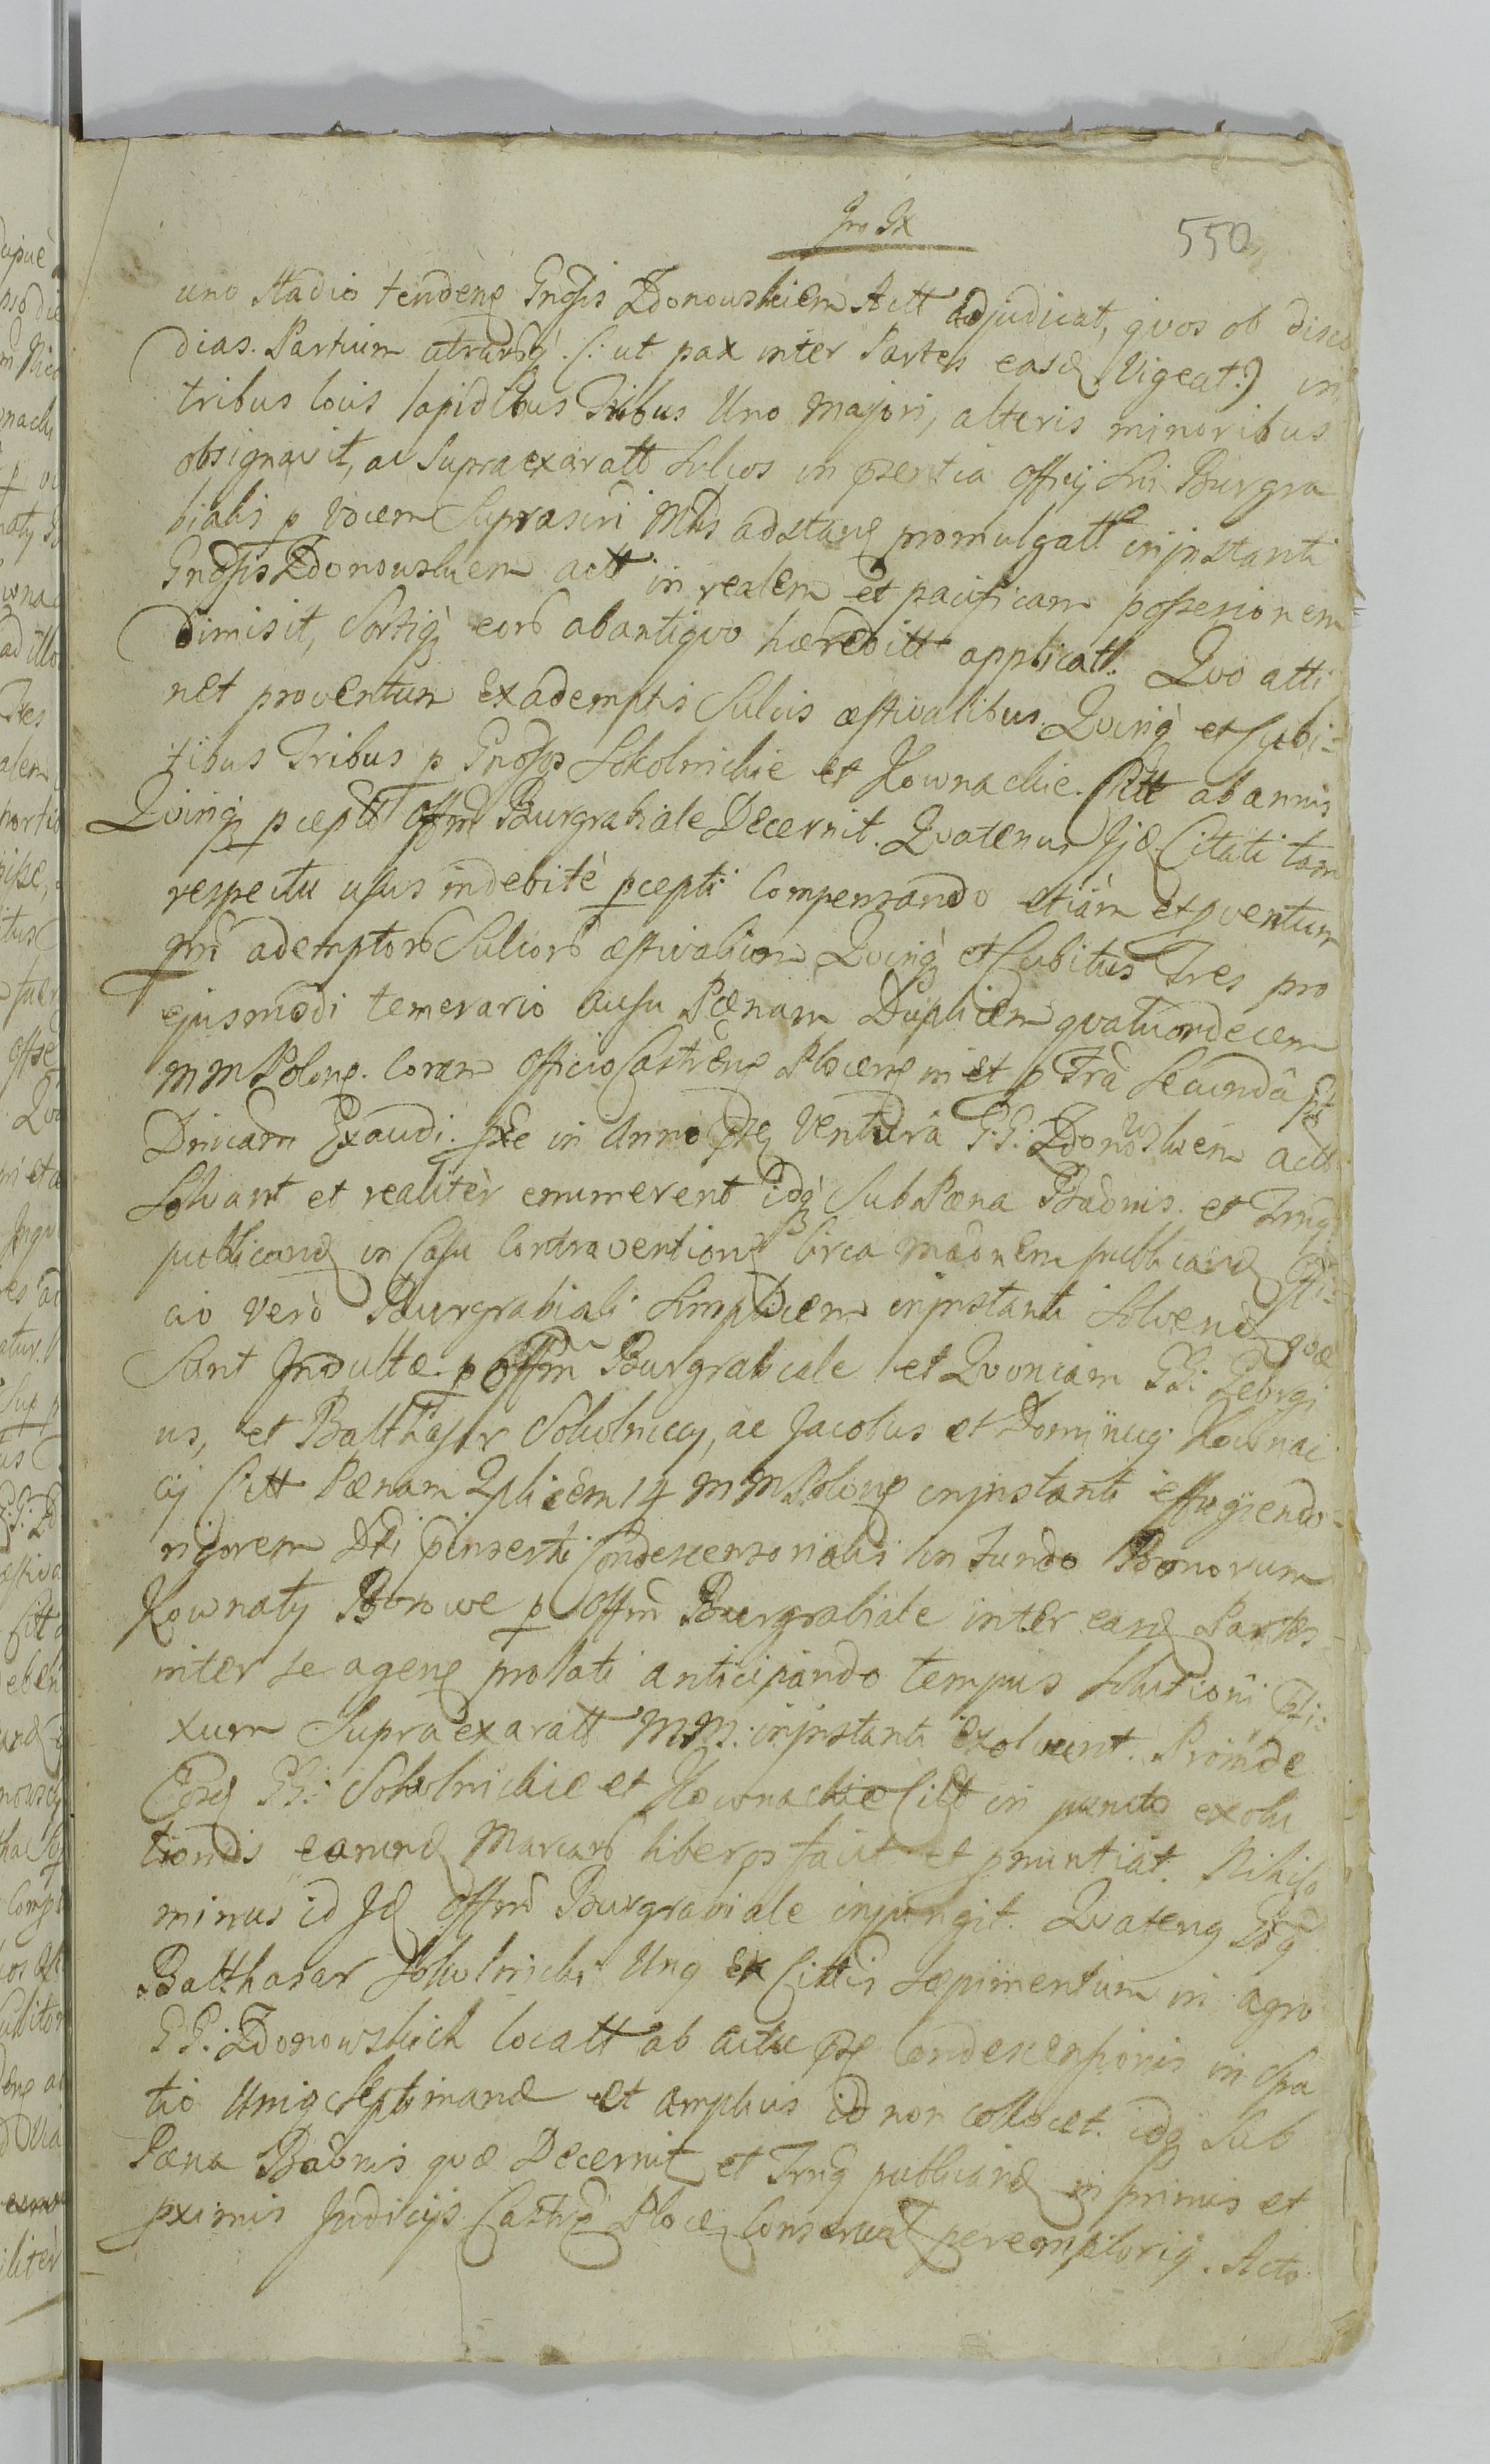 550
uno stadio tendenꝫ Gnosis Zdonowskiem Actt adjudicat, qvos ob disco
dias. Partium utrarꝫq́ (: ut pax inter Partes easd Vigeat :) in
tribus locis lapidibus Tribus Uno majori, alteris minoribus
obsignavit, ac Supra exaratt Sulcos in psentia Officij Sui Burgra
bialis p Vocem Suprascri Mtlis adstanꝫ promulgatt in instanti
Gnosis Zdonowskiem actt in realem et pacificam possesionem
dimisit, Sortiq́ꝫ eorꝫ ab antiqvo hæreditt applicatt. Qvo atti
net proventum ex ademptis Sulcis æstivalibus Qvinq́ et Cubi=
tibus Tribus p Gnosos Sokolnickie et Kownackie Citt ab annis
Qvinq́ꝫ pceptt Offm Burgrabiale Decernit. Qvatenus Jid Citati tam
respectu usus indebitè pcepti Compensando etiàm et pventum
ademptorꝫ Sulcorꝫ æstivalium Qvinq́ et Cubitus Tres pro
ejusmodi temerario ausu Pænam Duplicem qvatuordecem
MM Polonꝫ. Coram Officio Castrenꝫ Plocenꝫ p Frâ Secundâ
Dnicam Exaudi. in Anno Venturâ GG: Zdonowskiem actt
Solvant et realitèr enumerent idq́ꝫ Sub Pæna Badnis. et Trnꝫ
publicand in Casu Contraventionꝫ Circa Madnem publicand Offi=
cio verò Burgrabiali Simplicem in instanti Solvend qvæ
Sunt Jndultæ. p Offm Burgrabiale et Qvoniam GG: Georgi
us, et Balthasar Sokolniccy, ac Jacobus et Dominicꝫ Kownac
cij Citt Pænam 2plicem 14 MM Polonꝫ in instanti effugiendo=
rigorem Dti pinserti Condescensorialis in fundo Bonorum
Kownaty Borowe p Offm Burgrabiale inter easd Partes
inter se agenꝫ prolati anticipando tempus Solutioni
xum Supra exaratt MM. in instanti Exolverunt. Proinde
Eosd GG: Sokolnickie et Kownackie Citt in puncto exolu
tionis earund Marcarꝫ liberos facit et pnuntiat. Nihilo
minus id Jd Offm Burgrabiale injungit. Qvatenꝫ
Balthasar Sokolnicki Unꝫ ex Cittis Sæpimentum in agro
GG: Zdonowskich locatt ab actu Condescensionis in Spa
tio Uniꝫ Septimanæ et amplius id non collocet. idq Sub
Pæna Badnis qvæ Decernit et Trnꝫ publicand in Primis et
pximis Judicijs Castrꝫ Plocꝫ Conservat peremptoriè. Acto